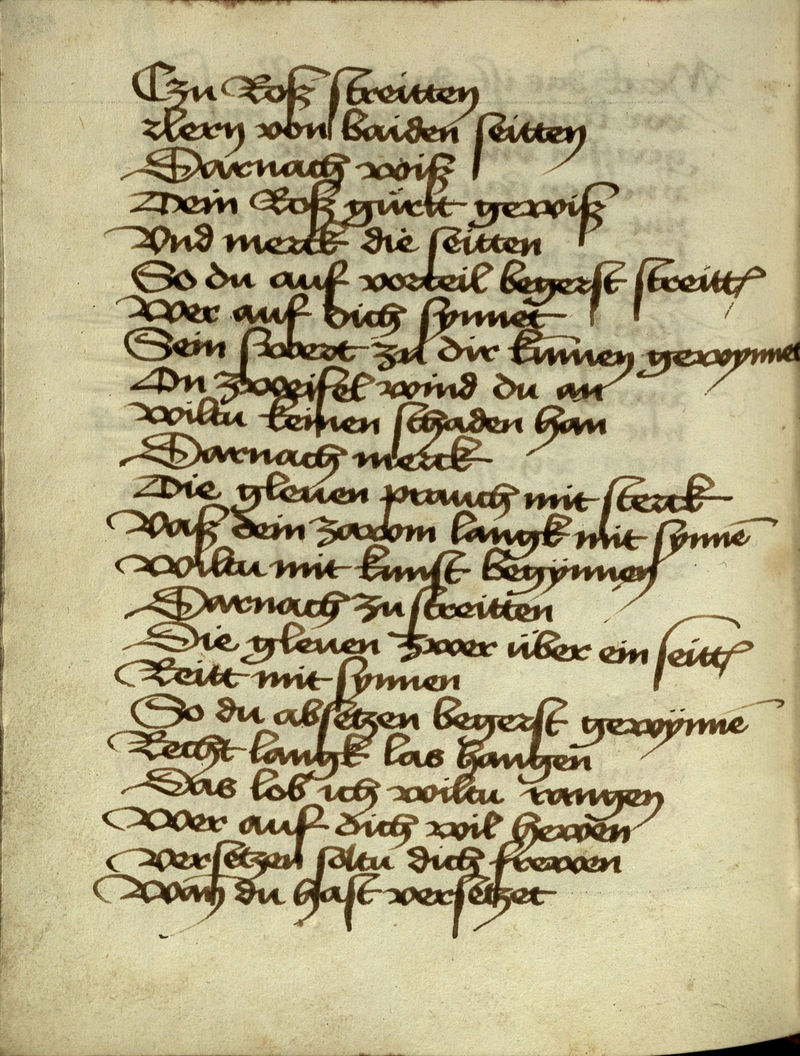 Czu Roß streitten
zlern von baiden seitten
Darnach wiß
Dein Roß gürtt gewiß
Vnd merck die seitten
So du auf vorteil begerst streitt
Wer auf dich synnet
Sein swert zu dir kūmen gewynnet
On zweifel wind du an
wiltu keinen schaden han
Darnach merck
Die gleuen prauch mit sterck
Vaß dein zawm langk mit synnē
Wiltu mit kunst begynnen
Darnach zu streitten
Die gleuen zwer über ein seitt
Reitt mit synnen
So du absetzen begerst gewynnē
Recht langk las hangen
Das lob ich wiltu rangen
Wer auf dich wil hewen
versetzen soltu dich frewen
Wan̄ du hast versetzet